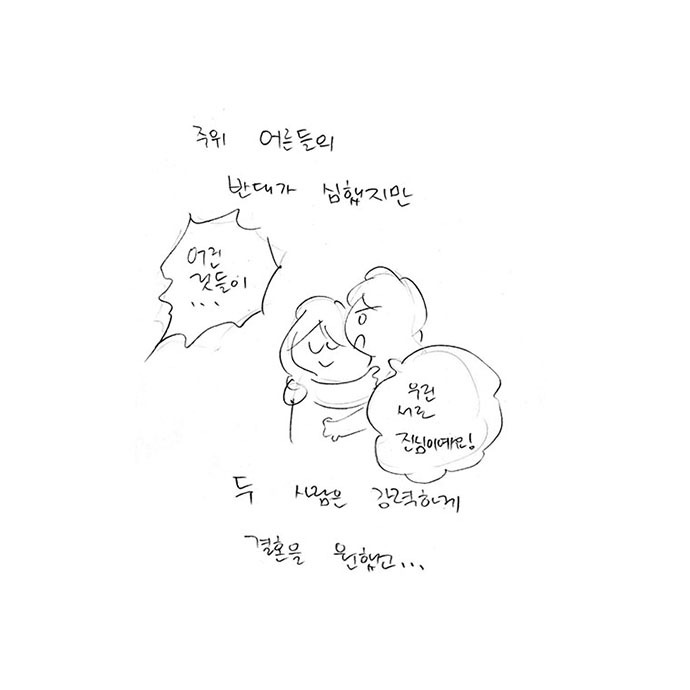 주위 어른들의
반대가 심했지만
어린
것들이
...
우린
서로
진심이에요!
두 사람은 강력하게
결혼을 원했고...